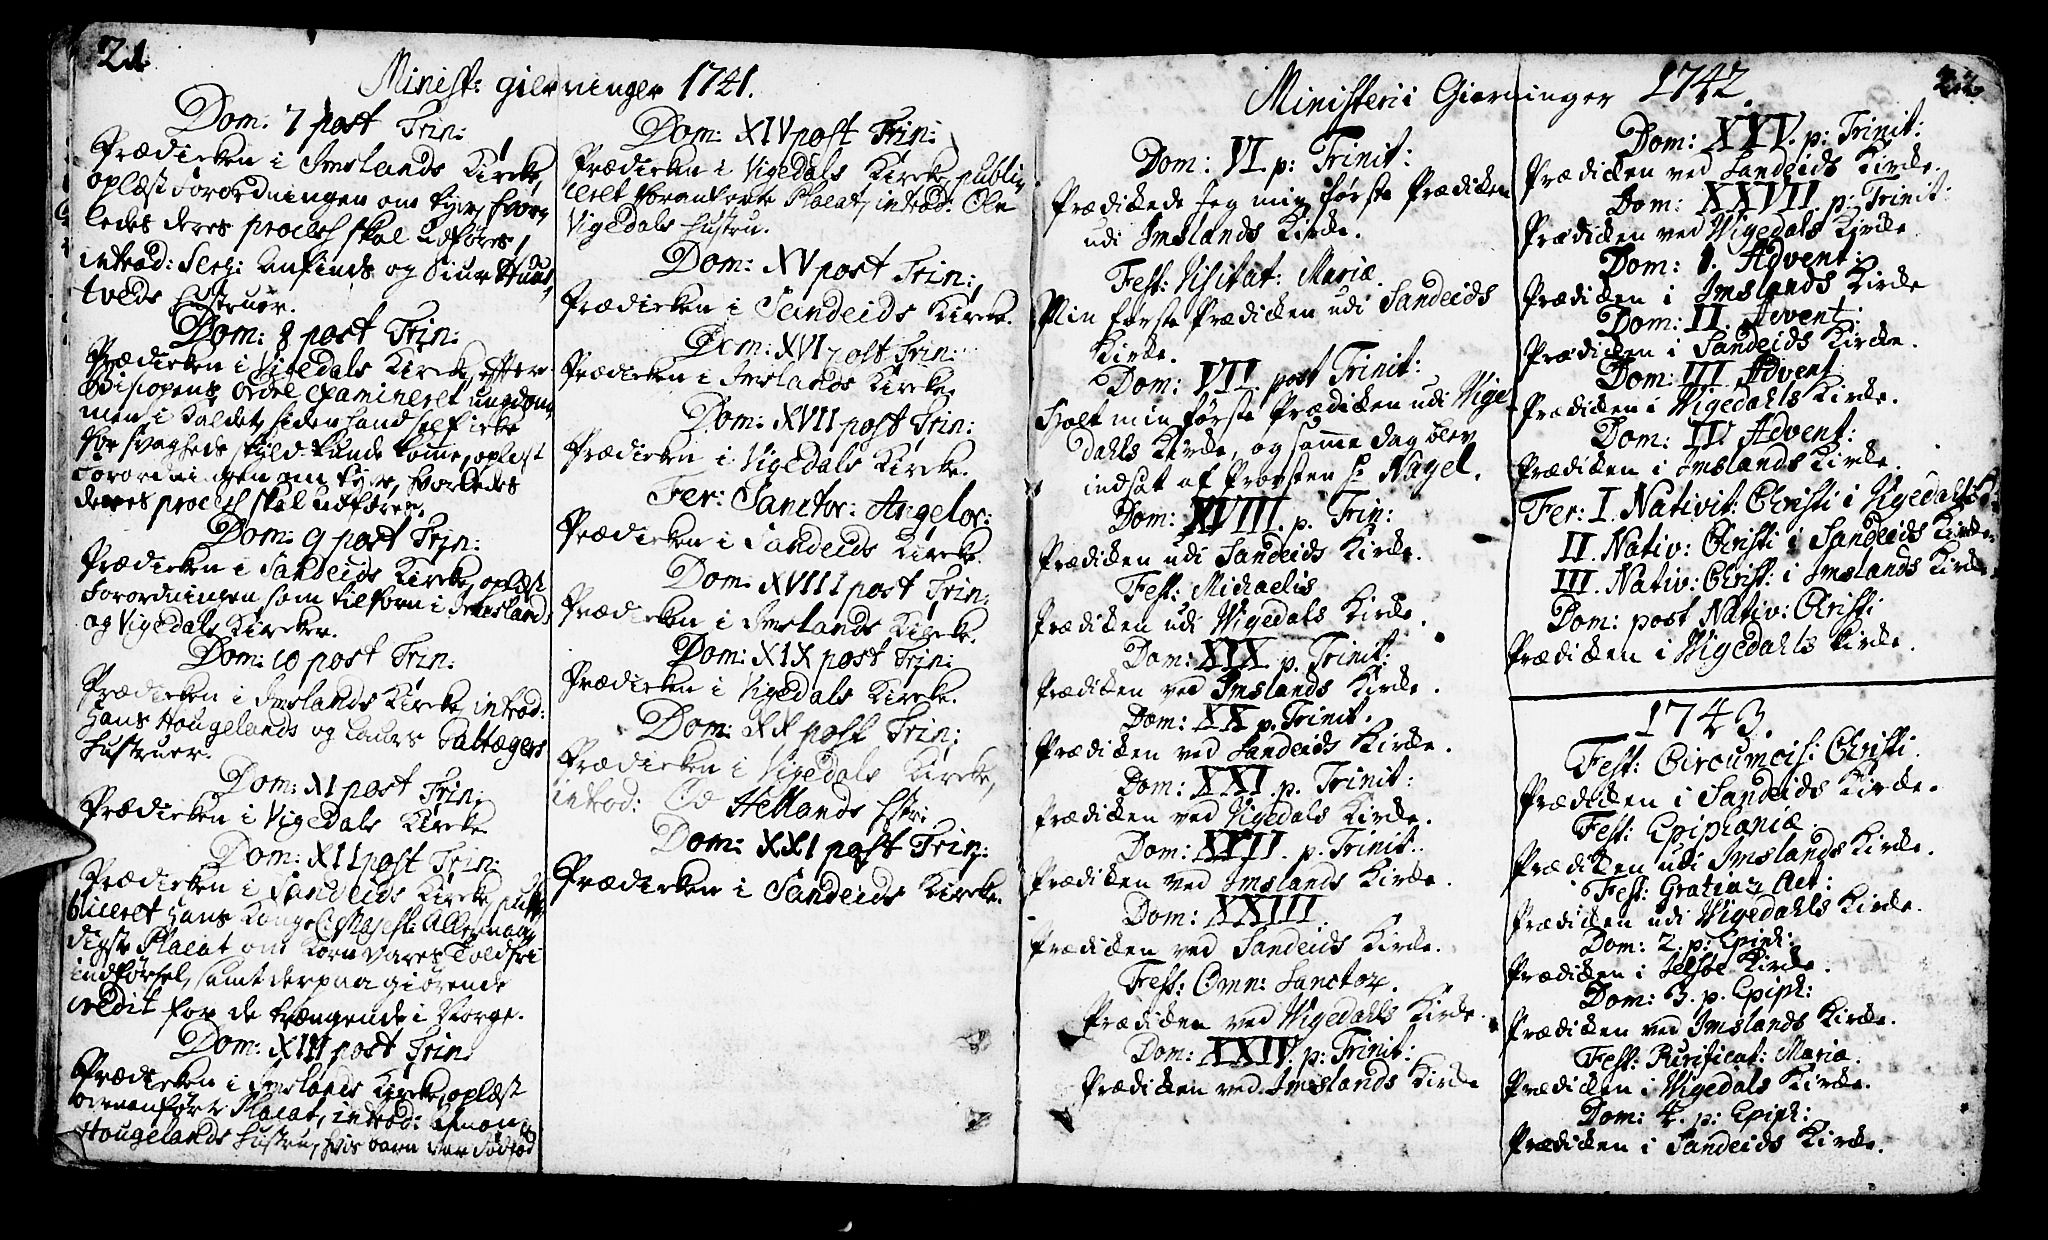 21.
Minist: gierninger 1741.
Dom: 7 post Trin:
Prædicken i Imslands Kircke,
oplæst forordningen om tyve, hvor¬
ledes deres process skal udføres,
introd: Serg: Anfinds og Siur
tveds Hustruer.
Dom: 8 post Trin:
Prædicken i Vigedals Kircke, efter
Bispens Ordre, examineret ungdom¬
men i Kaldet, siden hand self icke
for svagheds skyld kunde komme, oplæst
forordningen om tyve, hvorledes
deres process skal udføres.
Dom: 9 post Trin:
Prædicken i Sandeids Kircke, oplæst
forordningen som tilforn i Imslands
og Vigedals Kircker.
Dom: 10 post Trin:
Prædicken i Imslands Kircke introd:
Hans Hougelands og Galtagers
Hustruer.
Dom: XI post Trin:
Prædicken i Vigedals Kircke
Dom: XII post Trin:
Prædicken i Sandeids Kircke, pub¬
bliceret Hans Konge: Majest: Allernaa¬
digste Placat om Korn Vares Toldfri
indførsel, samt derpaa giørende
credit for de trængende i Norge.
Dom: XIII post Trin:
Prædicken i Imslands Kircke, oplæst
ovenanførte Placat, introd:
Hougelands Hustru, hvis barn var dødfød
Dom: XIV post Trin:
Prædicken i Vigedals Kircke, publi¬
ceret foranførte Placat, introd: Ole
Vigedals Hustru.
Dom: XV post Trin:
Prædicken i Sandeids Kircke.
Dom: XVI post Trin:
Prædicken i Imslands Kircke.
Dom: XVII post Trin:
Prædicken i Vigedals Kircke.
Fer: Sanctor: Angelor:
Prædicken i Sandeids Kircke.
Dom: XVIII post Trin:
Prædicken i Imslands Kircke.
Dom: XIX post Trin:
Prædicken i Vigedals Kircke.
Dom: XX post Trin:
Prædicken i Vigedals Kircke,
introd: Hellands Hstr:
Dom: XXI post Trin:
Prædicken i Sandeids Kircke.
Ministerii Gierninger 1742.
22.
Dom: VI p: Trinit:
Prædickede Jeg min første Prædicken
udi Imslands Kircke.
Fest: Visitat: Mariæ
Min første Prædicken udi Sandeids
Kircke.
Dom: VII post Trinit:
Holt min første Prædicken udi Vige
dahls Kircke, og samme dag blev
indsat af Provsten Hr Nagel.
Dom: XVIII. p. Trin:
Prædicken udi Sandeids Kircke.
Fest: Michaelis
Prædicken udi Vigedals Kircke.
Dom: XIX p. Trinit:
Prædicken ved Imslands Kircke.
Dom: XX p. Trinit.
Prædicken ved Sandeids Kircke.
Dom: XXI p. Trinit:
Prædicken ved Vigedals Kircke.
Dom: XXII. p. Trinit:
Prædicken ved Imslands Kircke.
Dom: XXIII.
Prædicken ved Sandeids Kircke.
Fest: Omn: Sanctor.
Prædicken ved Vigedahls Kircke.
Dom: XXIV. p: Trinit:
Prædicken ved Imslands Kircke
Dom: XXV. p: Trinit:
Prædicken ved Sandeids Kircke.
Dom: XXVII p: Trinit:
Prædicken ved Vigedals Kircke
Dom: 1. Advent:
Prædicken i Imslands Kircke
Dom: II Advent:
Prædicken i Sandeids Kircke.
Dom: III Advent
Prædicken i Vigedahls Kircke.
Dom: IV Advent:
Prædicken i Imslands Kircke.
Fer: I. Nativit: Christi i Vigedals
II. Nativ: Christi i Sandeids Kircke.
III. Nativ: Christ: i Imslands Kircke.
Dom: post Nativ: Christi
Prædicken i Vigedahls Kircke.
1743.
Fest: Circumcis: Christi.
Prædicken i Sandeids Kircke.
Fest: Epiphaniæ.
Prædicken udi Imslands Kircke.
Fest: Gratiar Act:
Prædicken udi Vigedahls Kircke.
Dom: 2. p: Epiph:
Prædicken i Jelsøe Kircke.
Dom: 3. p. Epiph:
Prædicken ved Imslands Kircke.
Fest: Purificat: Mariæ.
Prædicken i Vigedals Kircke.
Dom: 4. p: Epiph:
Prædicken i Sandeids Kircke.